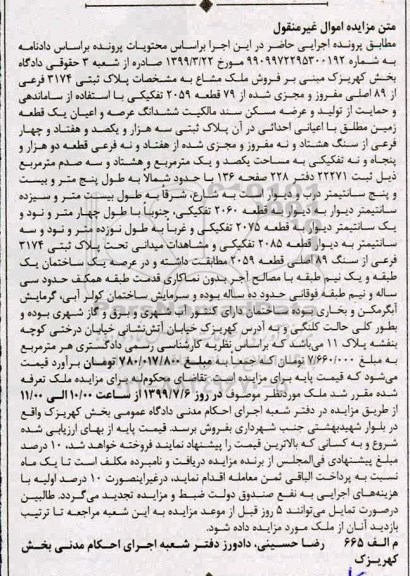 متن مزایده اموال غیرمنقول
مطابق پرونده اجرایی حاضر در این اجرا براساس محتویات پرونده براساس دادنامه
به شماره ۹۹۰۹۹۷۲۲۹۵۳۰۰۱۹۲ مورخ ۱۳۹۹/۳/۲۲ صادره از شعبه ۳ حقوقی دادگاه
بخش کهریزک مبنی بر فروش ملک مشاع به مشخصات پلاک ثبتی ۳۱۷۴ فرعی
از ۸۹ اصلی مفروز و مجزی شده از ۷۹ قطعه ۲۰۵۹ تفکیکی با استفاده از ساماندهی
و حمایت از تولید و عرضه مسکن سند مالکیت ششدانگ عرصه و اعیان یک قطعه
زمین مطلق با اعیانی احداثی در آن پلاک ثبتی سه هزار و یکصد و هفتاد و چهار
فرعی از سنگ هشتاد و نه مفروز و مجزی شده از هفتاد و نه فرعی قطعه دو هزار و
پنجاه و نه تفکیکی به مساحت یکصد و یک مترمربع و هشتاد و سه صدم مترمربع
ذیل ثبت ۲۲۲۷۱ دفتر ۲۲۸ صفحه ۱۳۶ با حدود شمالاً به طول پنج متر و بیست
و پنج سانتیمتر دیوار است به شارع، شرقاً به طول بیست متر و سیزده
سانتیمتر دیوار به دیوار به قطعه ۲۰۶۰ تفکیکی، جنوباً با طول چهار متر و نود و
یک سانتیمتر دیوار به قطعه ۲۰۷۵ تفکیکی و غرباً به طول نوزده متر و نود و سه
سانتیمتر به دیوار قطعه ۲۰۸۵ تفکیکی و مشاهدات میدانی تحت پلاک ثبتی ۳۱۷۴
فرعی از سنگ ۸۹ اصلی قطعه ۲۰۵۹ مطابقت داشته و در عرصه یک ساختمان یک
طبقه و یک نیم طبقه با مصالح آجر بدون نماکاری قدمت طبقه همکف حدود سی
ساله و نیم طبقه فوقانی حدود ده ساله بوده و سرمایش ساختمان کولر آبی، گرمایش
آبگرمکن و بخاری بوده ساختمان دارای کنتور آب شهری و برق و گاز شهری بوده و
بطور کلی حالت کلنگی و به آدرس کهریزک خیابان آتش‌نشانی خیابان درختی کوچه
بنفشه پلاک ۱۱ می‌باشد که براساس نظریه کارشناسی رسمی دادگستری هر مترمربع
به مبلغ ۷/۶۶۰/۰۰۰ تومان که جمعاً به مبلغ ۷۸۰/۰۱۷/۸۰۰ تومان برآورد قیمت
می‌شود که قیمت پایه برای مزایده است تقاضای محکوم‌له برای مزایده ملک تعرفه
شده مقرر شد ملک موردنظر موصوف در روز ۱۳۹۹/۷/۶ از ساعت ۱۰/۰۰ الی ۱۱/۰۰
از طریق مزایده در دفتر شعبه اجرای احکام مدنی دادگاه عمومی بخش کهریزک واقع
در بلوار شهیدبهشتی جنب شهرداری بفروش برسد. قیمت پایه از بهای ارزیابی شده
شروع و به کسانی که بالاترین قیمت را پیشنهاد نمایند فروخته خواهد شد، ۱۰ درصد
مبلغ پیشنهادی فی‌المجلس از برنده مزایده دریافت و نامبرده مکلف است تا یک ماه
نسبت به پرداخت الباقی ثمن معامله اقدام نماید، درغیراینصورت ۱۰ درصد اولیه با
هزینه‌های اجرایی به نفع صندوق دولت ضبط و مزایده تجدید می‌گردد. طالبین
درصورت تمایل می‌توانند ۵ روز قبل از موعد مزایده به این شعبه مراجعه تا ترتیب
بازدید آنان از ملک مورد مزایده داده شود.
م الف ۶۶۵ رضا حسینی، دادورز دفتر شعبه اجرای احکام مدنی بخش
کهریزک